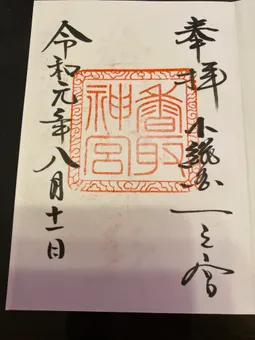 奉拝 下総国一之宮
香取神宮
令和元年八月十一日